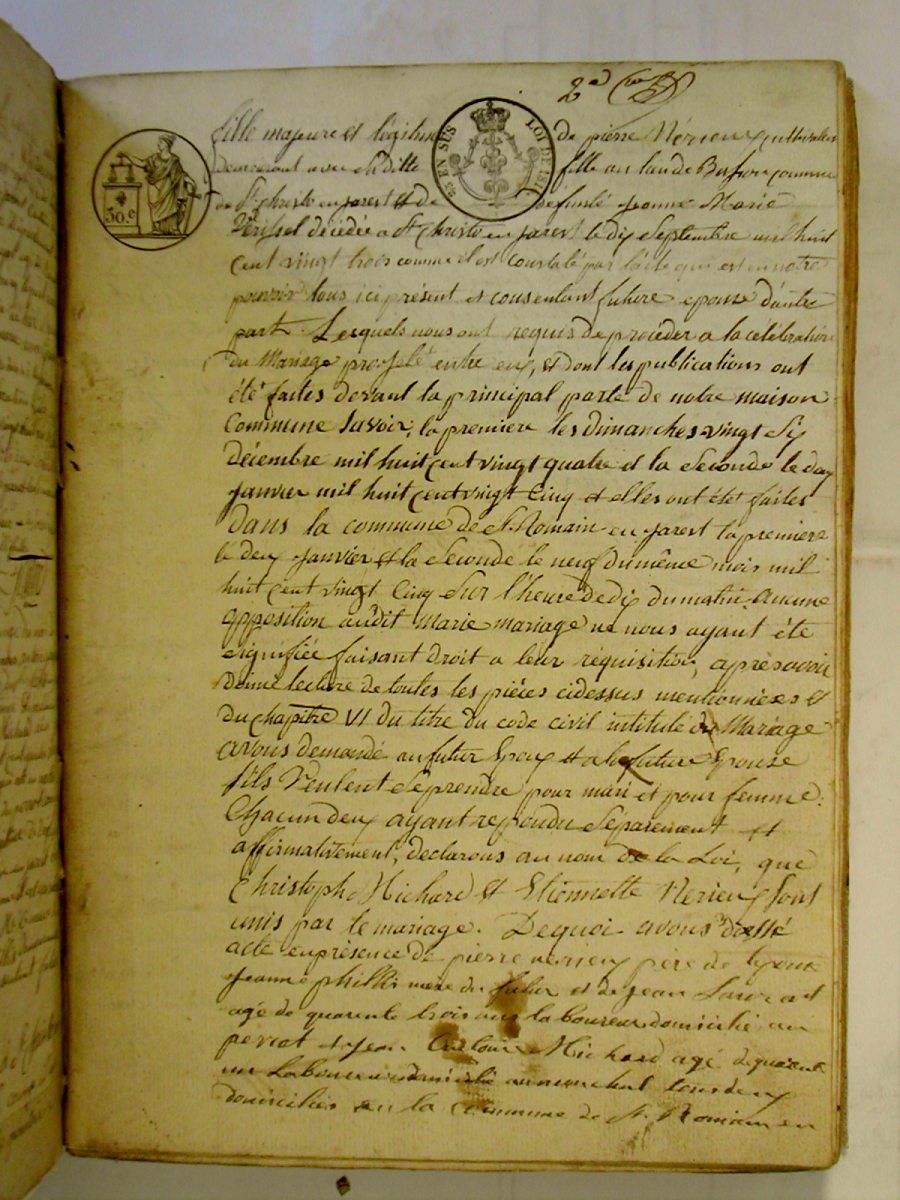 2e
30.c
EN SUS
LOI DE 181
fille majeure et légitime de pierre Nérieux cultivateur
demeurant avec Saditte fille au lieu de commune
de St christo en jarest et de Defunte jeanne Marie
décédée a St Christo en jarest le dix Septembre mil huit
cent vingt trois comme il est constaté par l'acte qui est en notre
pouvoir tous ici présent et consentant future epouse d'autre
part. Lesquels nous ont requis de procéder a la célébration
du Mariage projeté entre eux, et dont les publications ont
été faites devant la principal porte de notre maison
Commune Savoir, la premiere les dimanches vingt Six
décembre mil huit cent vingt quatre et la Seconde le deux
janvier mil huit cent vingt Cinq et elles ont étét faites
Dans la commune de St Romain en jarest la premiere
le deux janvier et la Seconde le neuf du même mois mil
huit Cent vingt Cinq Sur l'heure de dix du matin. aucune
opposition audit Marie mariage ne nous ayant été
Signifiée faisant droit a leur réquisition, après avoir
donné lecture de toutes les pièces cidessus mentionnées et
du chapitre VI du titre du code civil institulé du Mariage
avons demandé au futur Epoux et a la future Epouse
s'ils Veulent Se prendre pour mari et pour femme.
Chacun deux ayant repondu Séparement et
affirmativement, declarons au nom de la Loi, que
Christophe Michard et Etiennette Nérieux Sont
unis par le mariage. De quoi avons dressé
acte en présence de pierre nérieux père de lepouse
jeanne mere du futur et de jean
agé de quarente trois ans laboureur domicilié au
et jean Michard agé de quarente
un Laboureur domicilié au tous deux
domiciliés en la commune de St Romain en